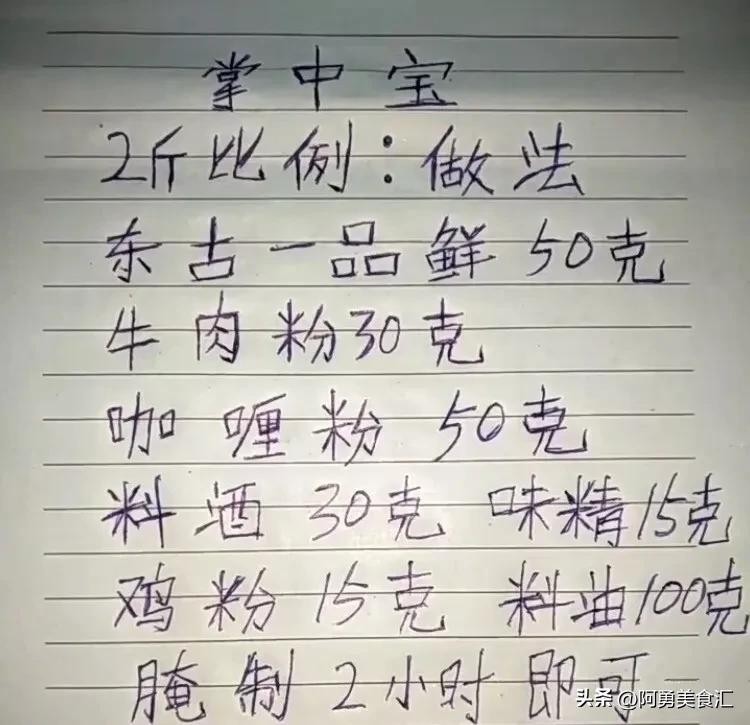 掌中宝
2斤比例：做法
东古一品鲜 50克
牛肉粉30克
咖喱粉 50克
料酒 30克 味精15克
鸡粉 15克 料油100克
腌制2小时即可
头条 @阿勇美食汇